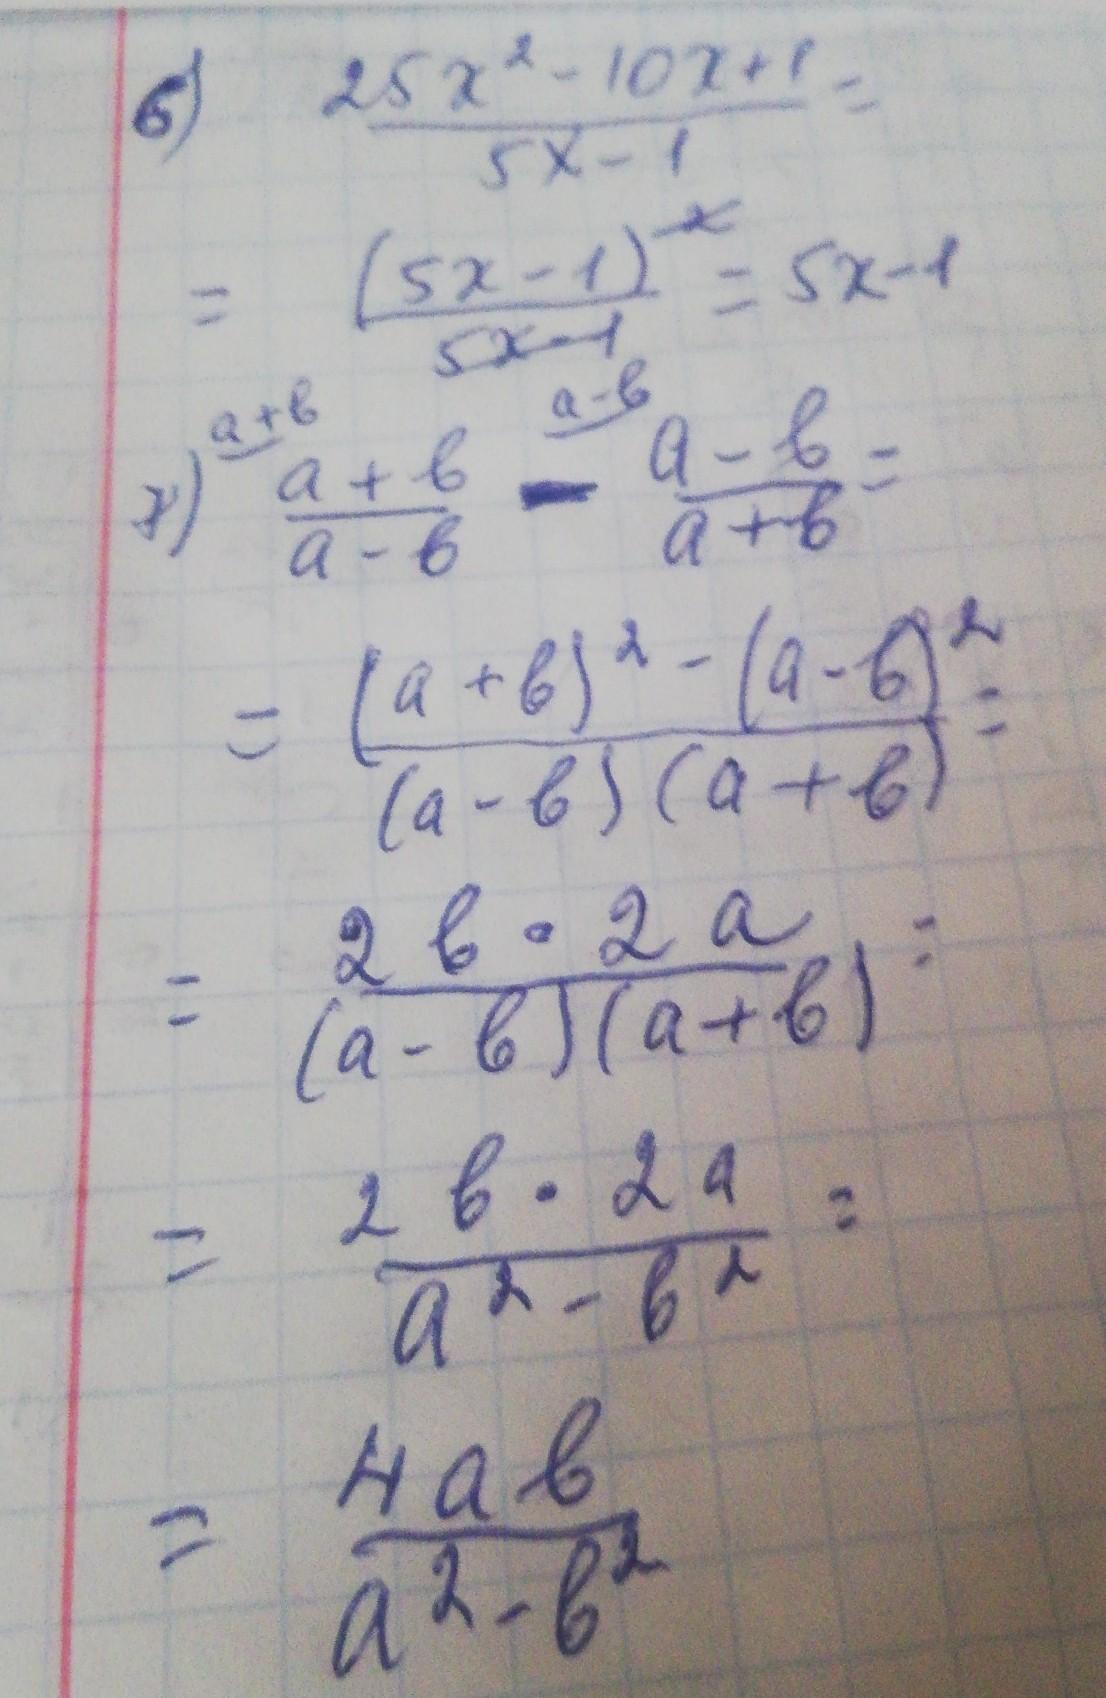 б) (25x² - 10x + 1)/(5x - 1) =
= (5x - 1)²/(5x - 1) = 5x - 1
a + b a - b
(a + b)/(a - b) - (a - b)/(a + b) =
= ((a + b)² - (a - b)²)/((a - b)(a + b)) =
= (2b · 2a)/((a - b)(a + b)) =
= (2b · 2a)/(a² - b²) =
= 4ab/(a² - b²)